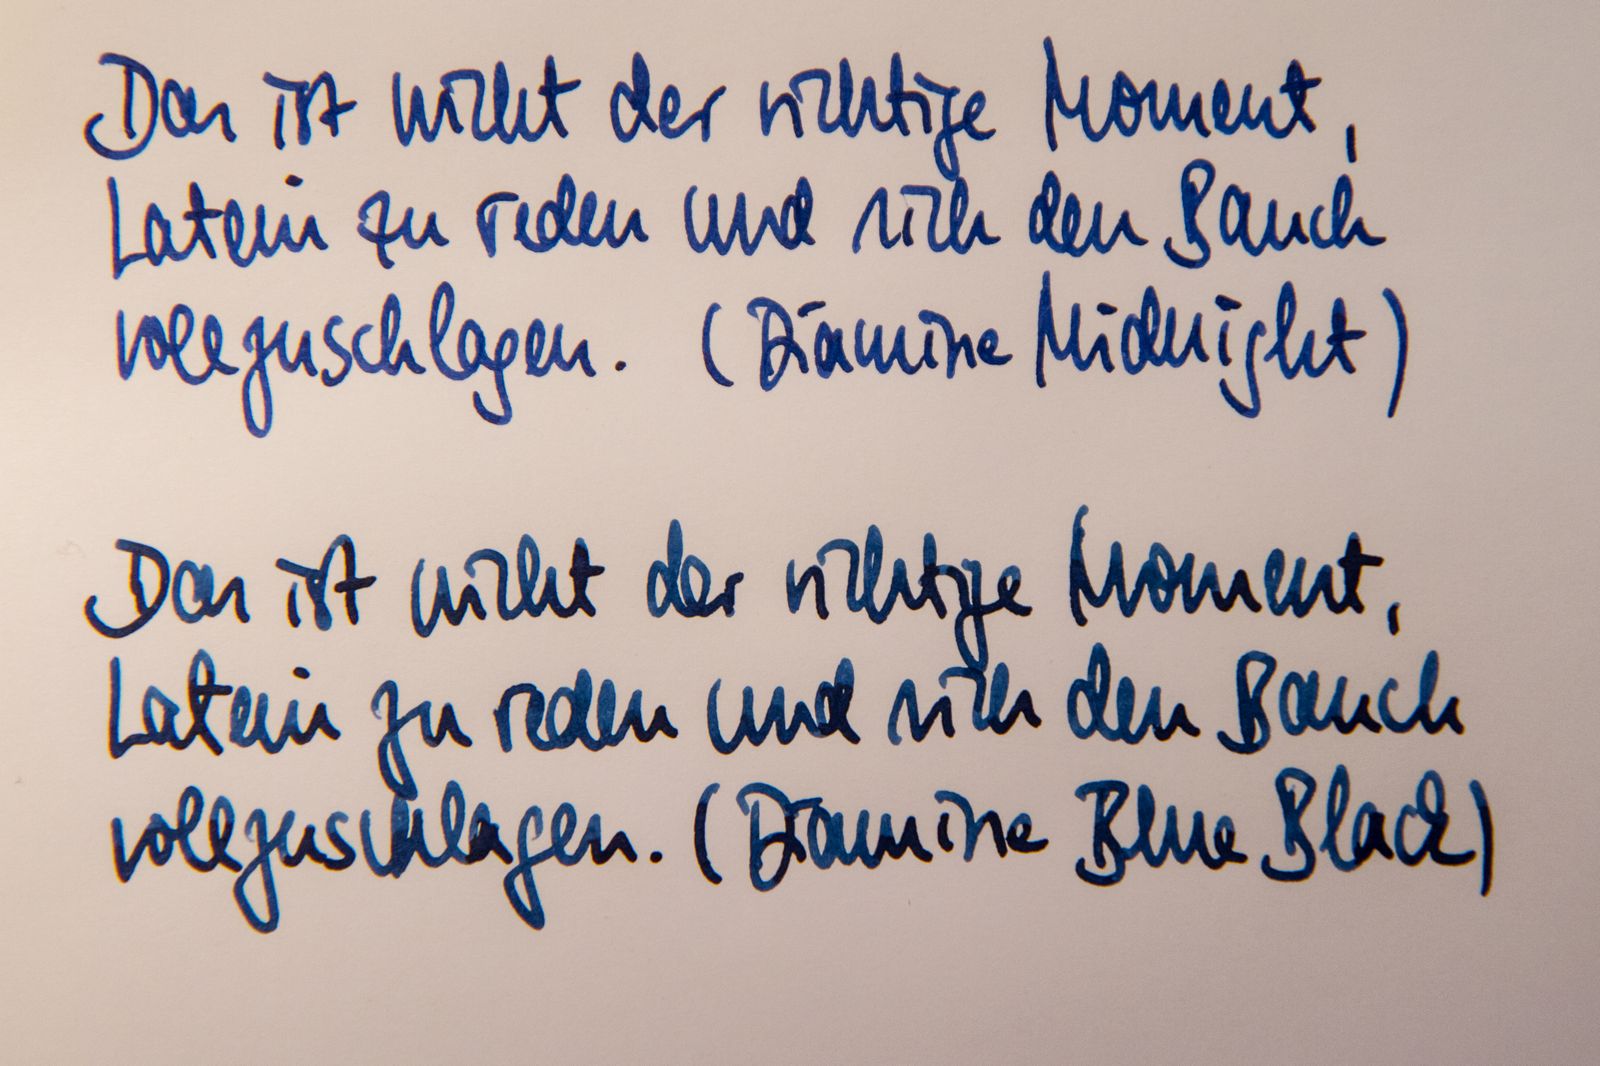 Das ist nicht der richtige Moment,
Latein zu reden und sich den Bauch
vollzuschlagen. (Diamine Midnight)
Das ist nicht der richtige Moment,
Latein zu reden und sich den Bauch
vollzuschlagen. (Diamine Blue Black)